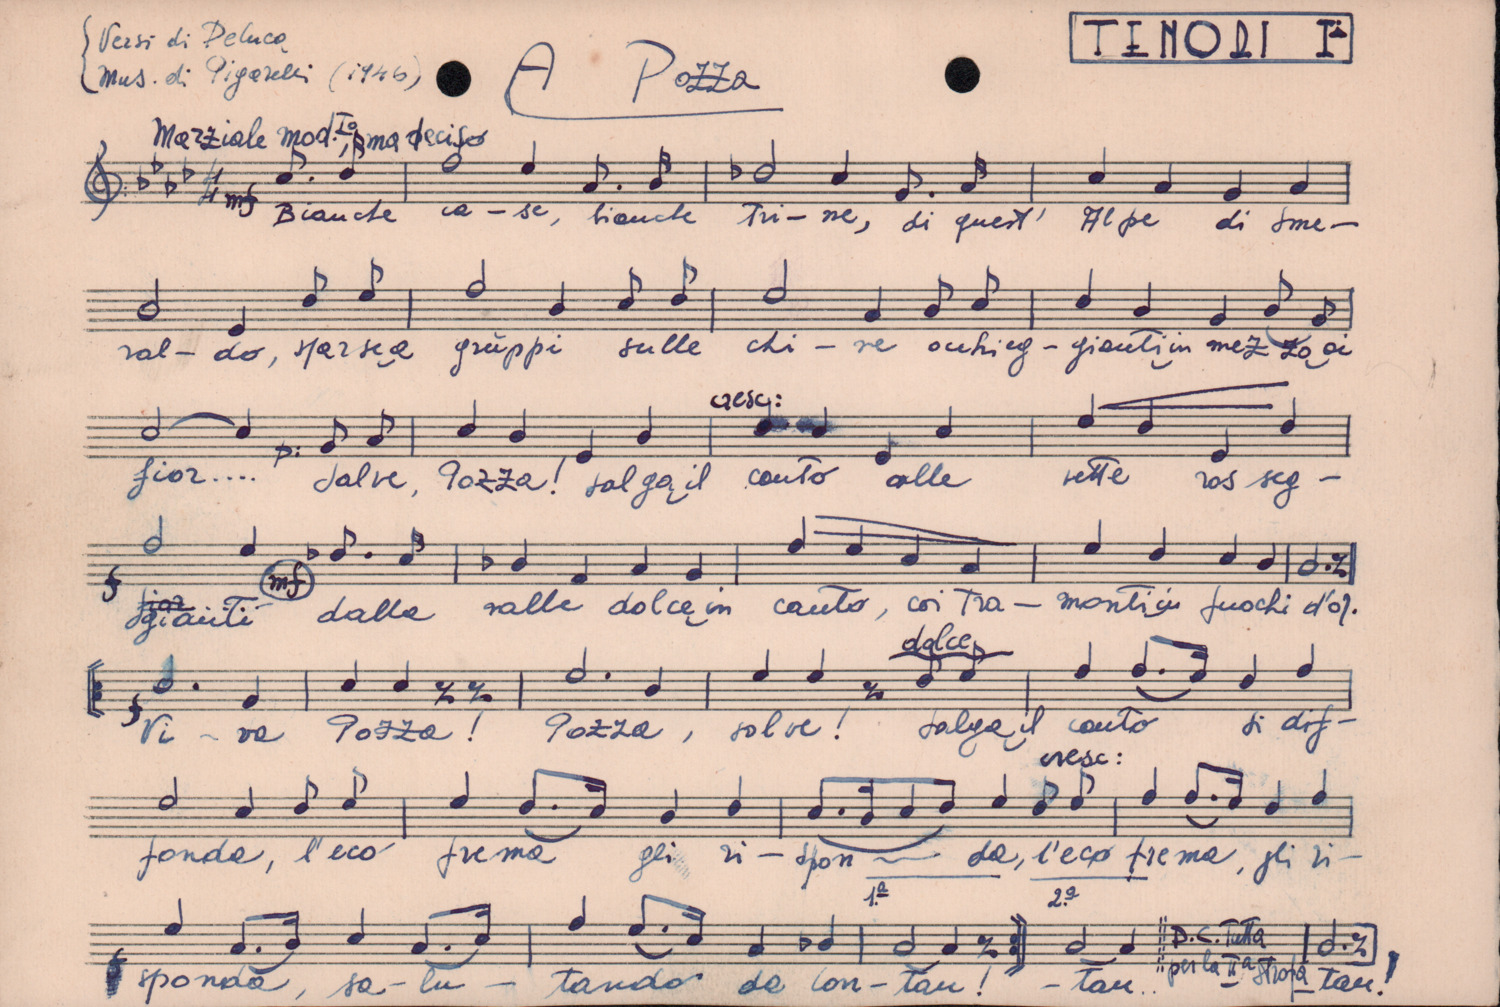 Versi di Deluca
Mus. di Pigarelli (1946)
A Pozza
TENORI I
Marziale mod.to, ma deciso
mf
Bianche ca - se, bianche tri - ne, di quest' Alpe di sme -
ral - do, sparse a gruppi sulle chi - ne occhieg - gianti in mezzo ai
cresc:
p:
fior.... Salve, Pozza! salga il canto alle vette ros seg -
f mf
gianti dalla valle dolce in canto, coi tra - monti in fuochi d'or.
dolce
f
Vi - va Pozza! Pozza, salve! salga il canto si dif -
cresc:
fonda, l'eco frema gli ri - spon da, l'eco frema, gli ri -
1.a 2.a
f
sponda, sa - lu - tando da lon - tan! - tan.. D.C. Tutta
per la IIa strofa - tan!